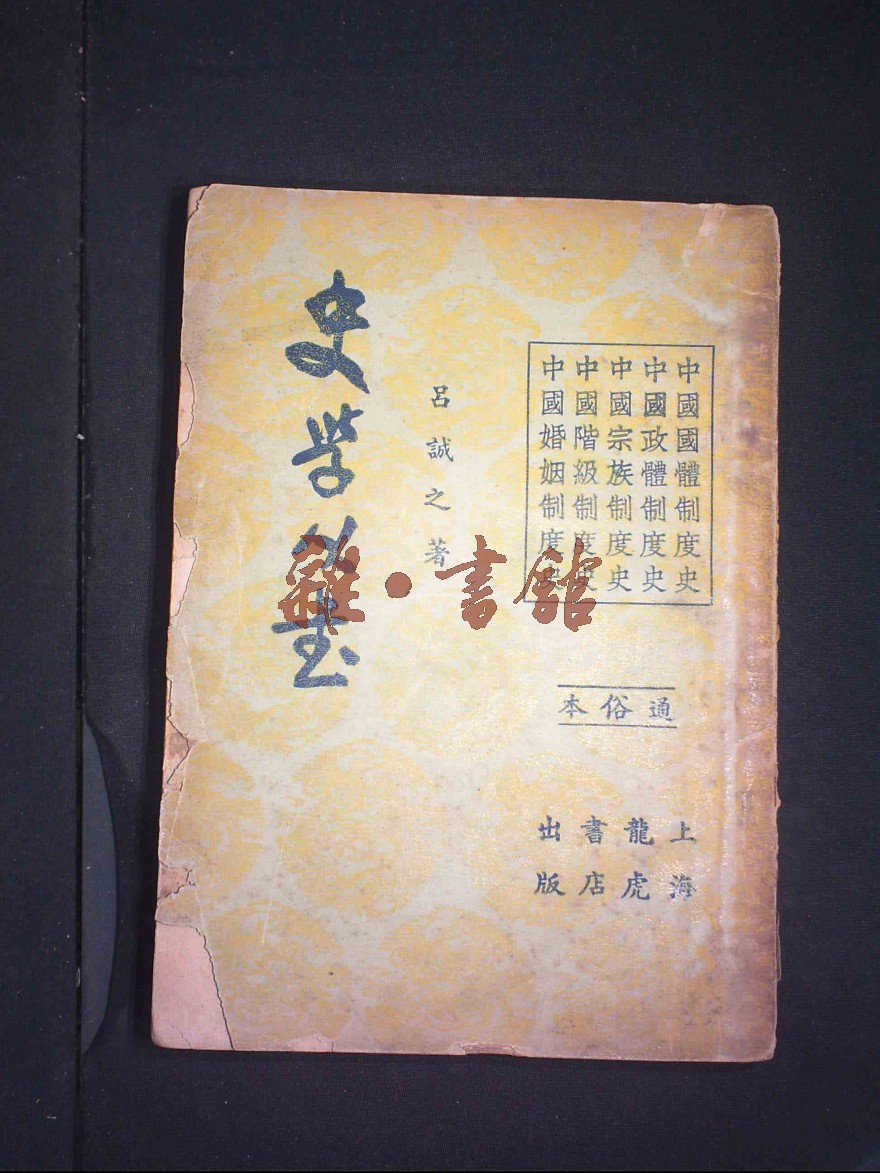 中國國體制度史
中國政體制度史
中國宗族制度史
中國階級制度史
中國婚姻制度史
通俗本
上海
龍虎
書店
出版
呂誠之著
史学
雜·書館